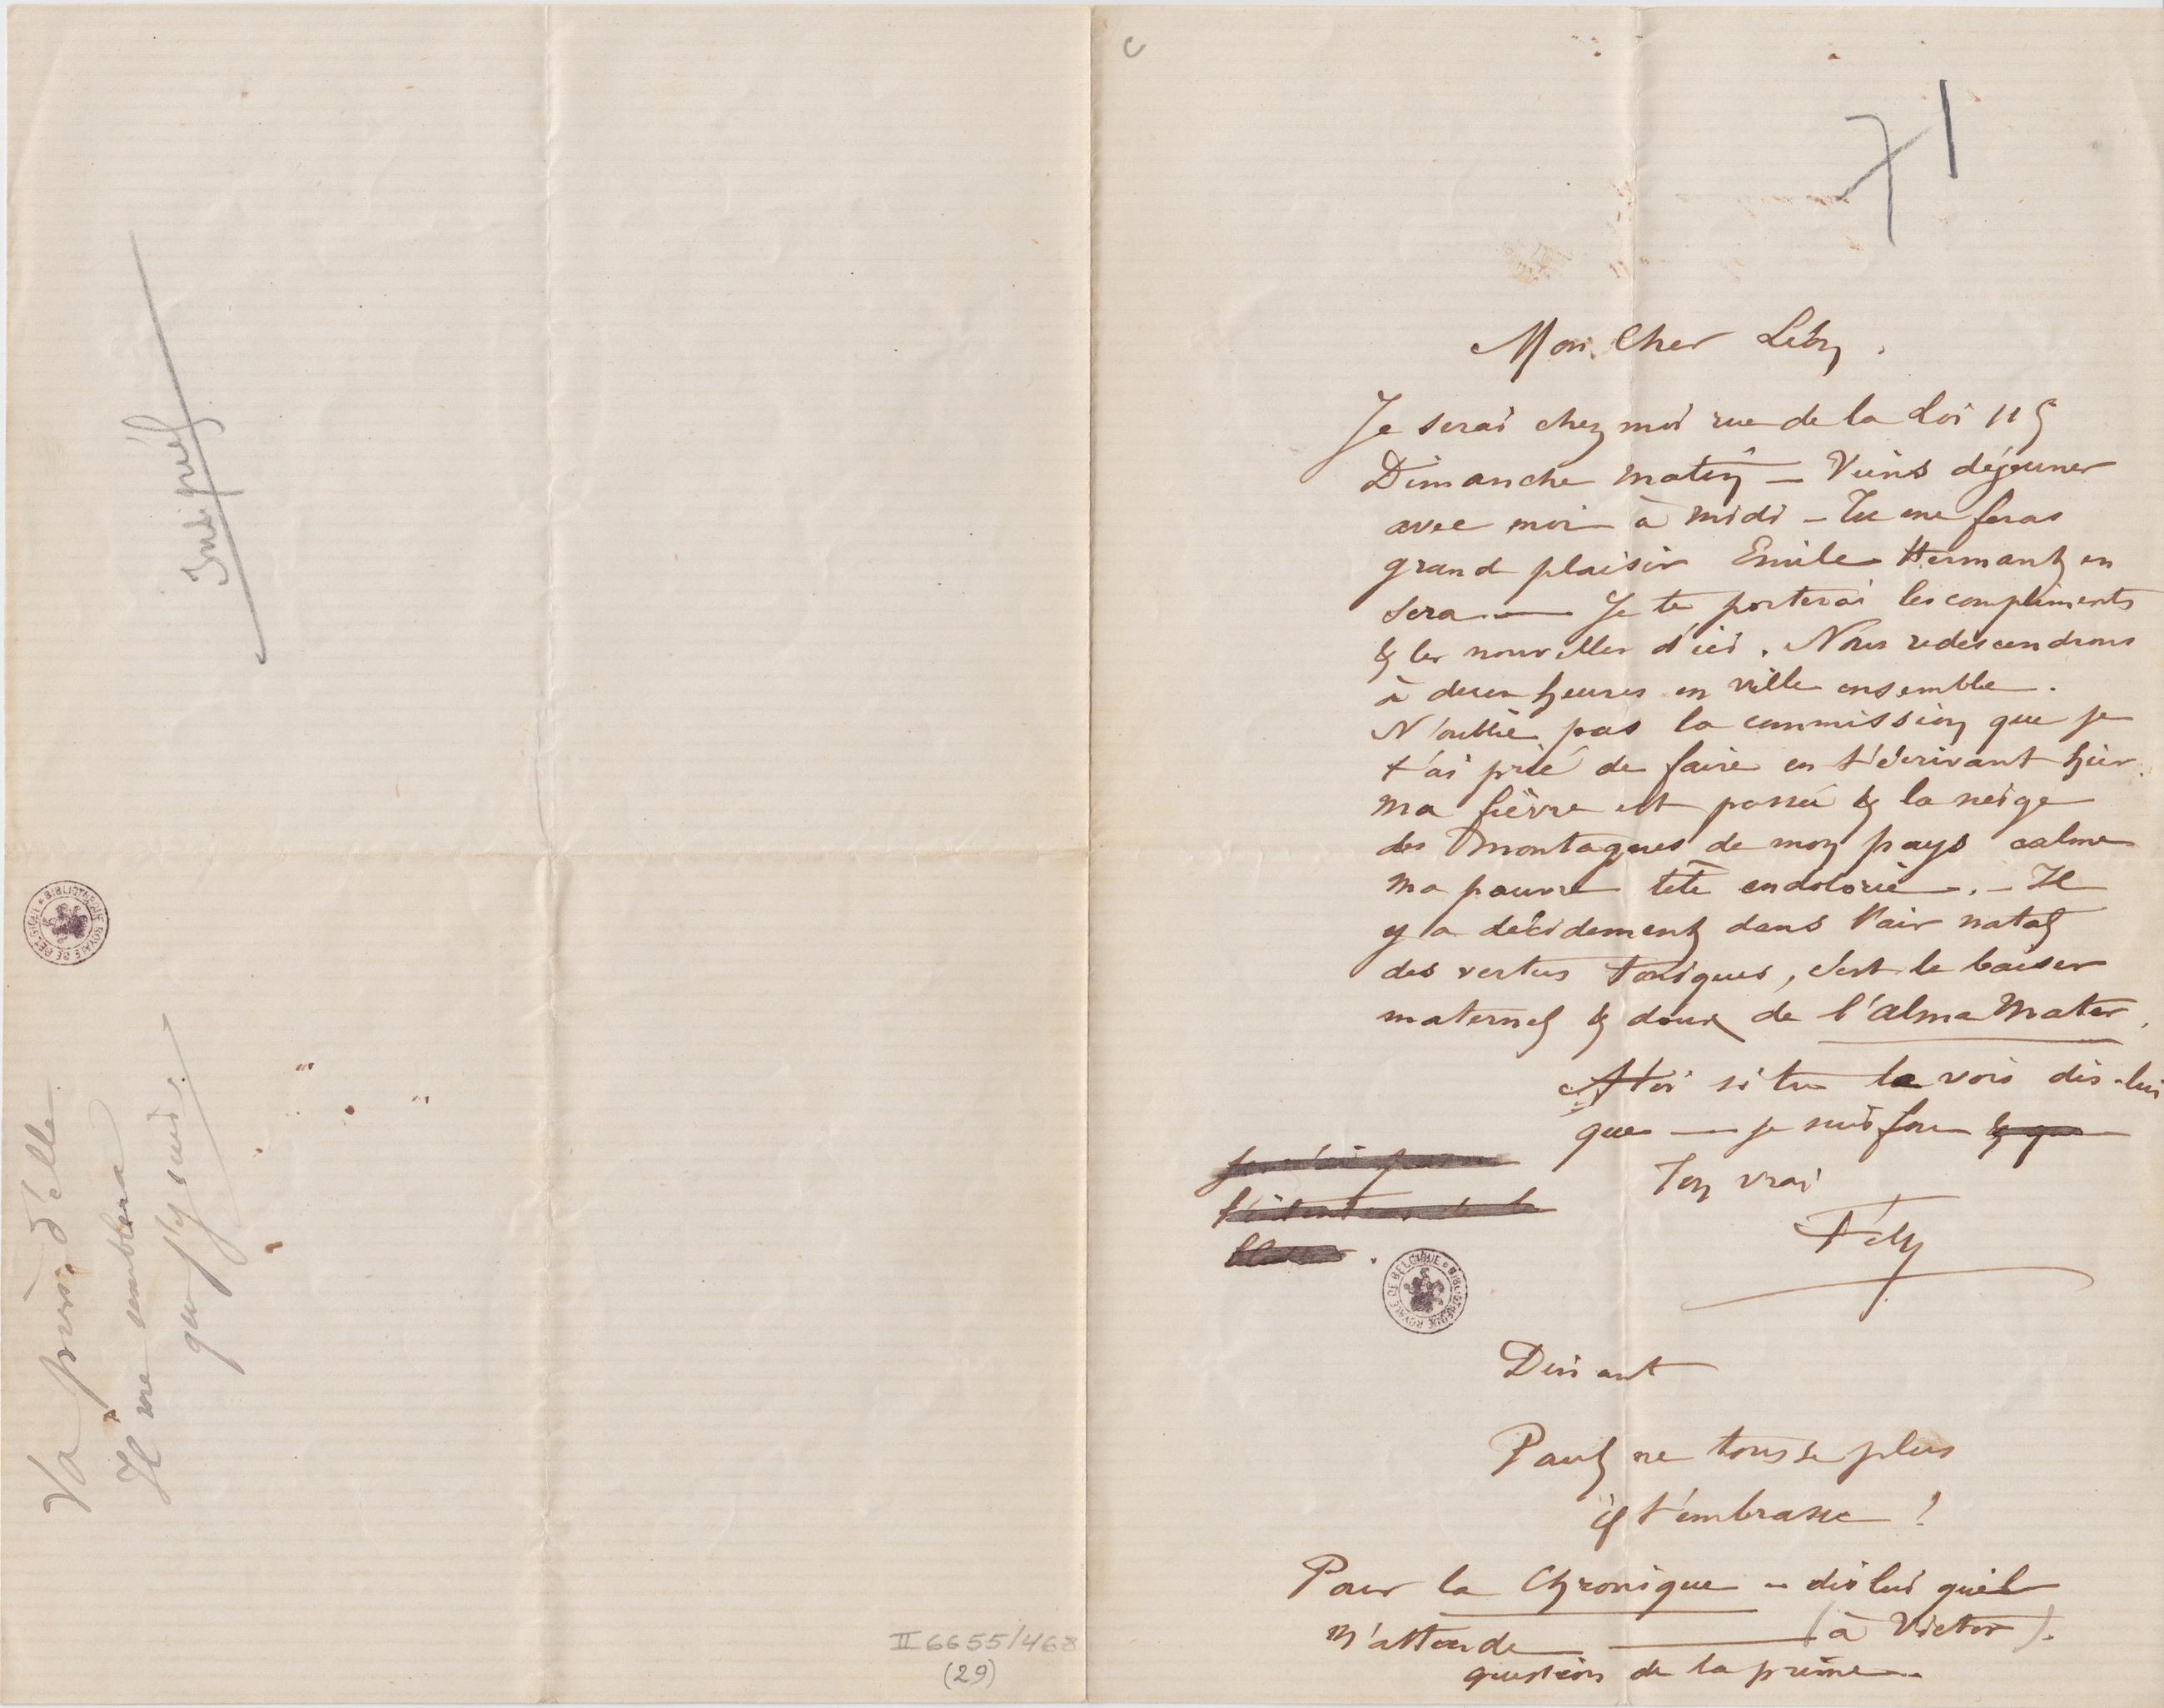 Va près d'elle
Il me semblera
que j'y suis.
II 6655/468
(29)
c
71
Mon Cher Léon.
Je serai chez moi rue de la Loi 115
Dimanche matin – Viens déjeuner
avec moi à midi – Tu me feras
grand plaisir Emile Hermant en
sera — Je te porterai les compliments
& les nouvelles d'ici. Nous redescendrons
à deux heures en ville ensemble.
N'oublie pas la commission que je
t'ai prié de faire en t'écrivant hier.
Ma fièvre est passée & la neige
des Montagnes de mon pays calme
ma pauvre tête endolorie. – Il
y a décidement dans l'air natal
des vertus toniques, c'est le baiser
maternel & doux de l'Alma Mater.
A toi si tu la vois dis-lui
que — je suis fou & que
Ton vrai
Fély
Dinant
Paul ne tousse plus
il t'embrasse !
Pour la Chronique – dis lui qu'il
m'attende — (à Victor).
question de la prime.
BIBLIOTHEQUE ROYALE DE BELGIQUE
BIBLIOTHEQUE ROYALE DE BELGIQUE